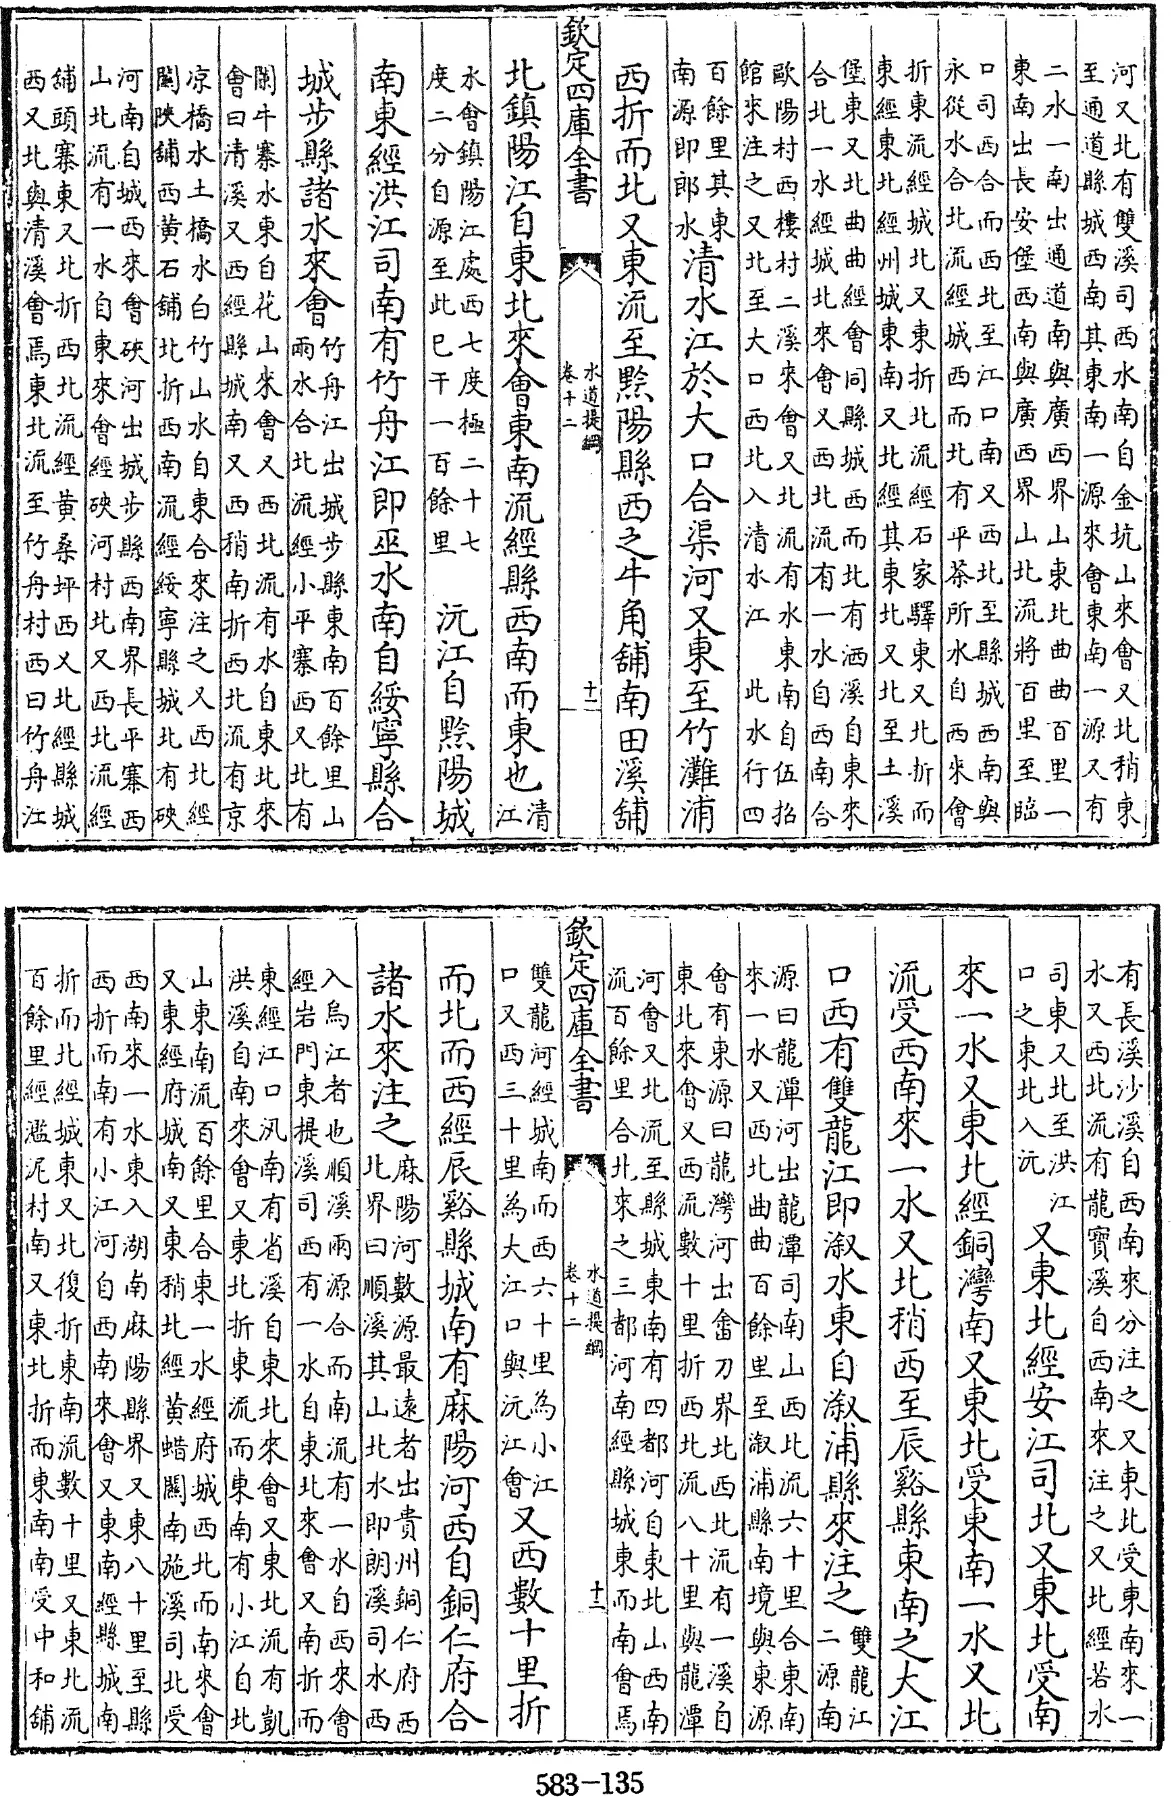 河又北有雙溪司西水南自金坑山來會又北稍東
至通道縣城西南其東南一源來會東南一源又有
二水一南出通道南與廣西界山東北曲曲百里一
東南出長安堡西南與廣西界山北流將百里至臨
口司西合而西北至江口南又西北至縣城西南與
永從水合北流經城西而北有平茶所水自西來會
折東流經城北又東折北流經石家驛東又北折而
東經東北經州城東南又北經其東北又北至土溪
堡東又北曲曲經會同縣城西而北有洒溪自東來
合北一水經城北來會又西北流有一水自西南合
歐陽村西樓村二溪來會又北流有水東南自伍招
館來注之又北至大口西北入清水江　此水行四
百餘里其東
南源即郎水
清水江於大口合渠河又東至竹灘浦
西折而北又東流至黔陽縣西之牛角舖南田溪舖
欽定四庫全書
水道提綱
卷十二
十二
北鎮陽江自東北來會東南流經縣西南而東也
清
江
水會鎮陽江處西七度極二十七
度二分自源至此巳千一百餘里
沅江自黔陽城
南東經洪江司南有竹舟江即巫水南自綏寧縣合
城步縣諸水來會
竹舟江出城步縣東南百餘里山
兩水合北流經小平寨西又北有
闌牛寨水東自花山來會又西北流有水自東北來
會曰清溪又西經縣城南又西稍南折西北流有京
凉橋水土橋水白竹山水自東合來注之又西北經
關陜舖西黄石舖北折西南流經綏寧縣城北有硤
河南自城西來會硤河出城步縣西南界長平寨西
山北流有一水自東來會經硤河村北又西北流經
舖頭寨東又北折西北流經黄桑坪西又北經縣城
西又北與清溪會焉東北流至竹舟村西曰竹舟江
有長溪沙溪自西南來分注之又東北受東南來一
水又西北流有龍寳溪自西南來注之又北經若水
司東又北至洪江
口之東北入沅
又東北經安江司北又東北受南
來一水又東北經銅灣南又東北受東南一水又北
流受西南來一水又北稍西至辰谿縣東南之大江
口西有雙龍江即溆水東自溆浦縣來注之
雙龍江
二源南
源曰龍潭河出龍潭司南山西北流六十里合東南
來一水又西北曲曲百餘里至溆浦縣南境與東源
會有東源曰龍灣河出畬刀界北西北流有一溪自
東北來會又西流數十里折西北流八十里與龍潭
河會又北流至縣城東南有四都河自東北山西南
流百餘里合北來之三都河南經縣城東而南會焉
欽定四庫全書
水道提綱
卷十二
十二
雙龍河經城南而西六十里為小江
口又西三十里為大江口與沅江會
又西數十里折
而北而西經辰谿縣城南有麻陽河西自銅仁府合
諸水來注之
麻陽河數源最遠者出貴州銅仁府西
北界曰順溪其山北水即朗溪司水西
入烏江者也順溪兩源合而南流有一水自西來會
經岩門東提溪司西有一水自東北來會又南折而
東經江口汛南有省溪自東北來會又東北流有凱
洪溪自南來會又東北折東流而東南有小江自北
山東南流百餘里合東一水經府城西北而南來會
又東經府城南又東稍北經黄蜡關南施溪司北受
西南來一水東入湖南麻陽縣界又東八十里至縣
西折而南有小江河自西南來會又東南經縣城南
折而北經城東又北復折東南流數十里又東北流
百餘里經濫泥村南又東北折而東南南受中和舖
583-135